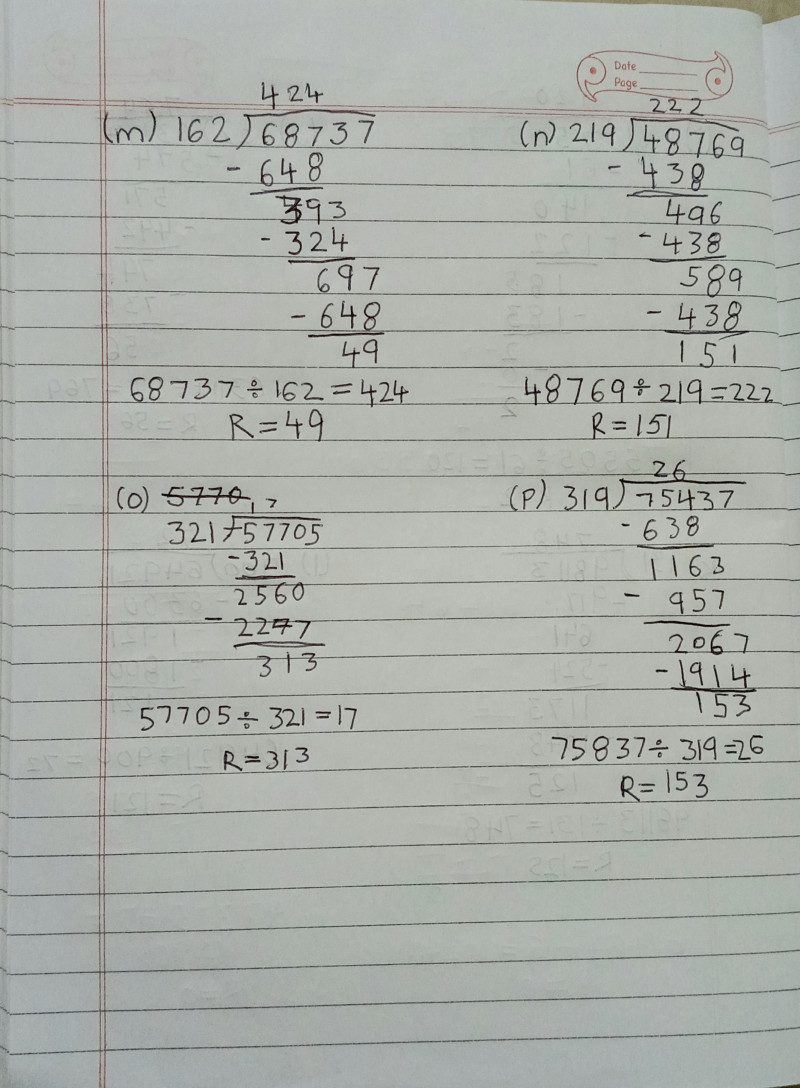 Date
Page
424
(m) 162)68737
- 648
393
- 324
697
- 648
49
68737 ÷ 162 = 424
R = 49
222
(n) 219)48769
- 438
496
- 438
589
- 438
151
48769 ÷ 219 = 222
R = 151
(o) 5770
17
321)57705
- 321
2560
- 2247
313
57705 ÷ 321 = 17
R = 313
26
(P) 319)75437
- 638
1163
- 957
2067
- 1914
153
75837 ÷ 319 = 26
R = 153